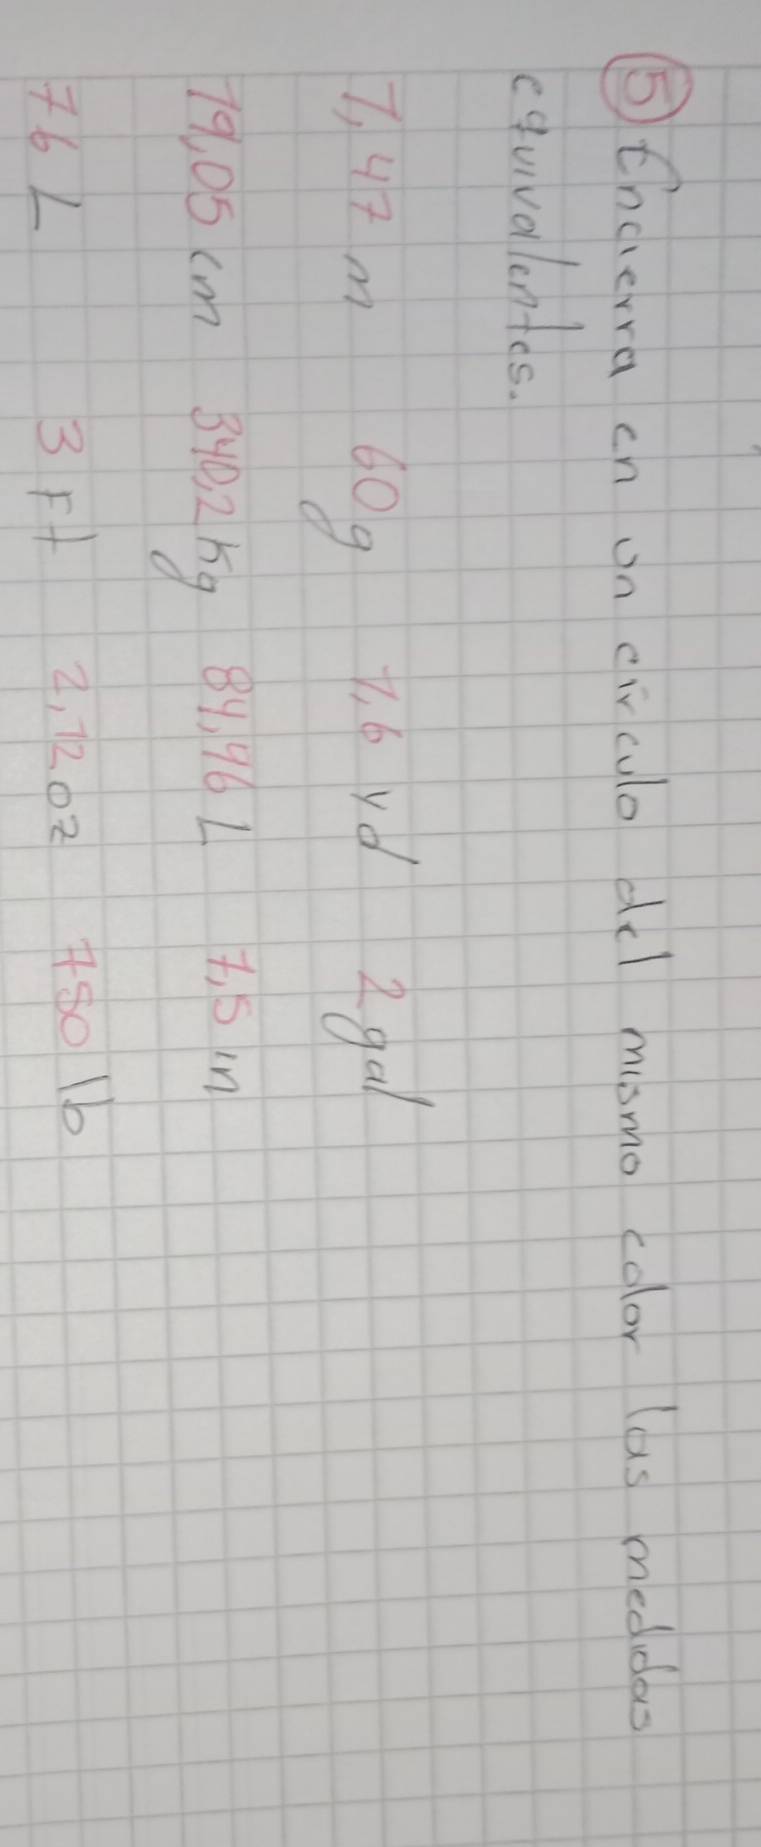 5 Encierra en un círculo del mismo color las medidas
equivalentes.
1,47 m 60 g 1,6 yd 2 gal
19,05 cm 340,2 kg 84,96 L 7,5 in
76 L 3 Ft 2,12 oz 750 lb